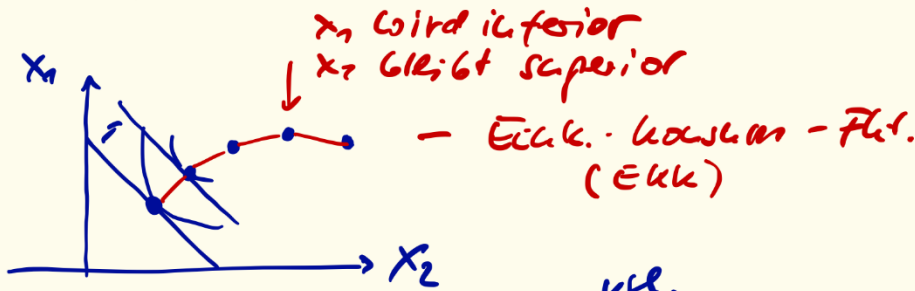 x₁ wird inferior
x₂ bleibt superior
X₁
– Eink.-konsum-Fkt.
(EKK)
X₂